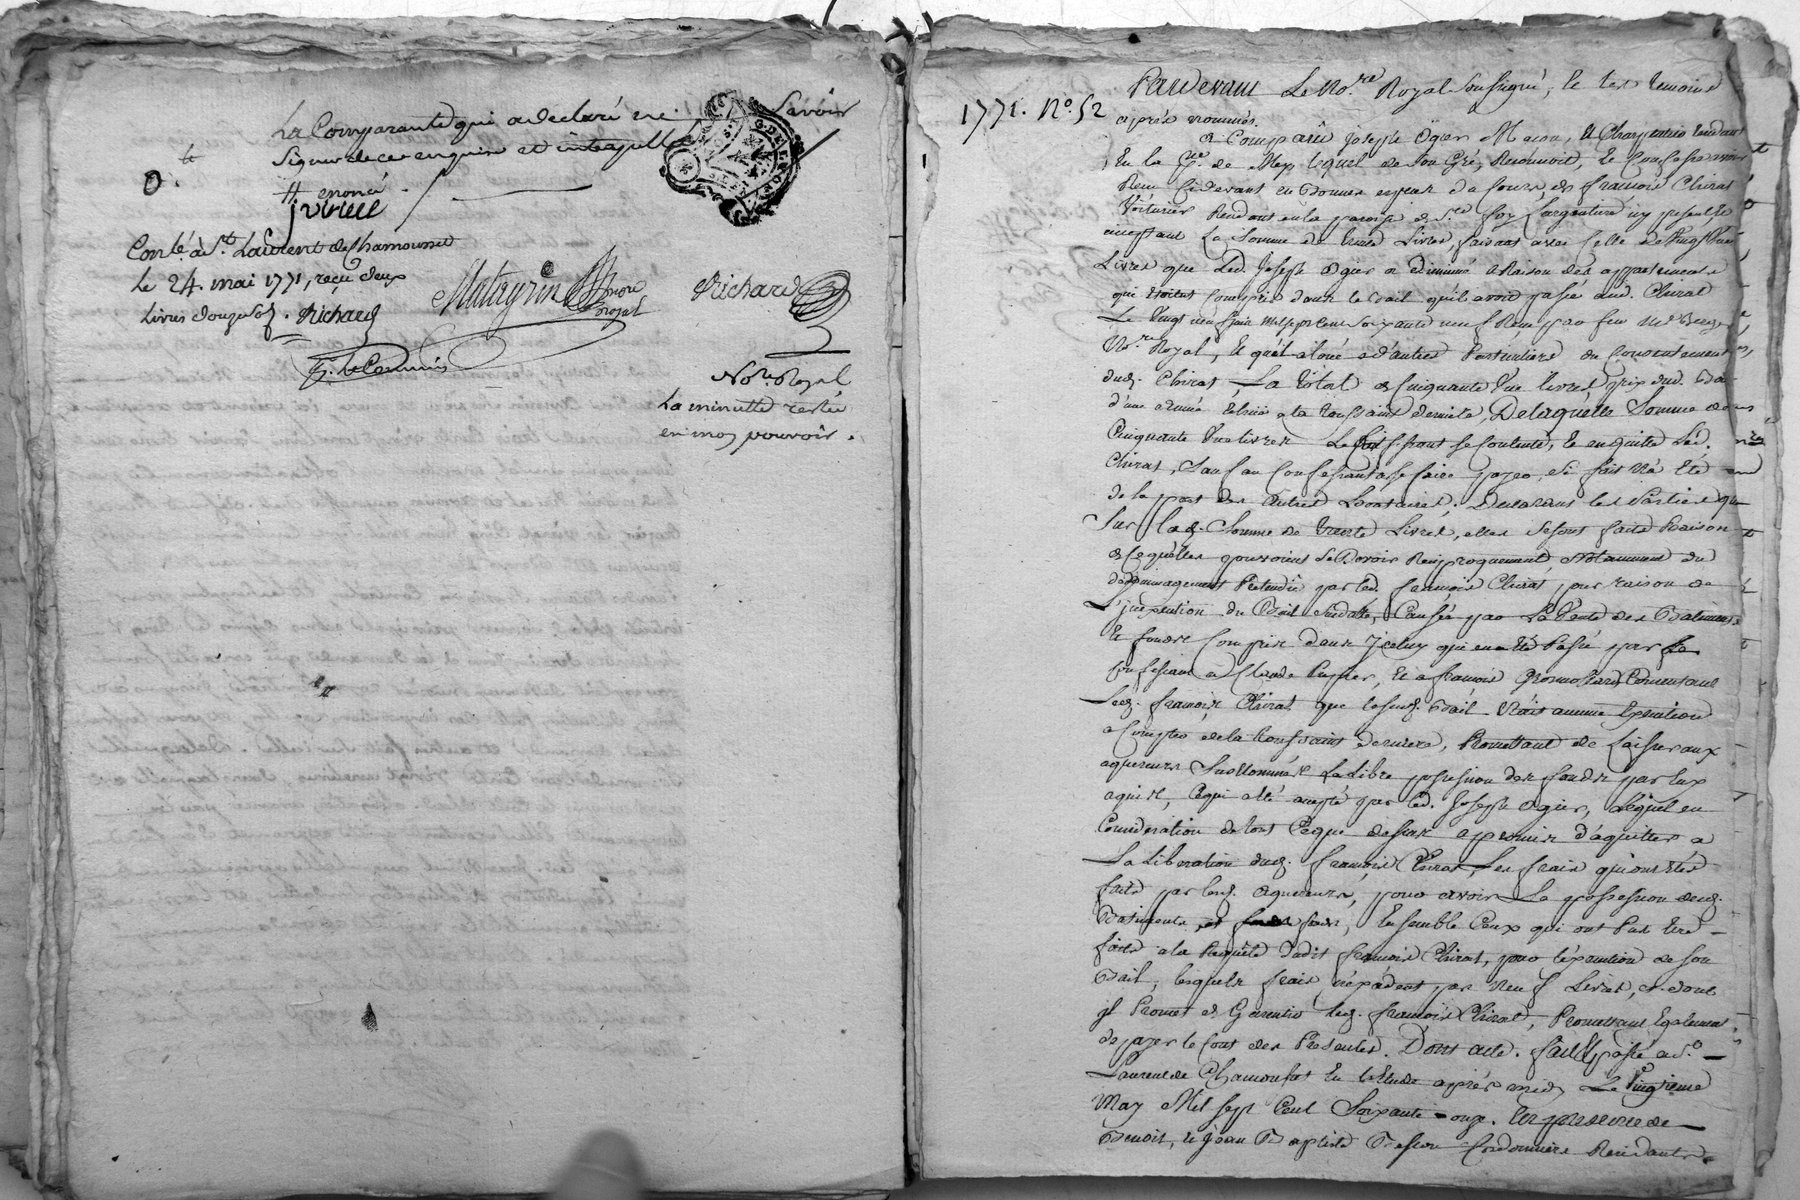 La Comparante qui a declaré ne Savoir
Signer de ce enquise et interpellée
# enoncé
Con.lé à St. Laurent de Chamousset
le 24. mai 1771, reçu deux
livres douze sols. Richard
Matagrin
Richard
Nore. Royal
La minutte restée
en mon pouvoir.
1771. No. 52
Pardevant Le No.re Royal Soussigné, et les temoins
après nommés.
a Comparû Joseph Ogier Macon, et Charpentier residant
En la de Mey, lequel de son Gré, Reconnoit, et Confesse avoir
Reçu Cidevant en Bonnes especes de Cours de françois Chirat
Voiturier Residant en la paroisse de Ste. foy L'argentiere icy present et
acceptant La Somme de trente Livres, faisant avec Celle de Vingt Une
Livres que Led. Joseph Ogier a Diminué a Raison des appartements
qui etoient Compris dans le Bail qu'il avoit passé aud. Chirat
Le Vingt neuf Juin Mil sept Cent Soixante neuf Reçu par feu Me
No.re Royal, et qu'il a loué a d'autres Particuliers du Consentement
dud. Chirat La total de Cinquante Une livres prix dud. Bail
d'une année Echüe a la toussaint derniere, De laquelle Somme de
Cinquante Une livres Le Confessant se Contente, et en quitte Led.
Chirat, Sauf au Confessant a se faire payer, si fait n'a Eté
de la part des autres Locataires. Declarent les Parties que
Sur lad. Somme de trente Livres, elles se sont faite Raison
de Ce qu'elles pouvoient se Devoir Reciproquement, Notamment du
dedommagement Pretendu par led. françois Chirat pour raison de
L'inexecution du Bail Susdatté, Causée par La Vente des Batiments
et fonds Compris dans Iceluy qui en a Eté Passé par Le
Confessant a Claude et a françois Consentant
Led. françois Chirat que le sud. Bail N'ait aucune Execution
a Compter de la toussaint derniere, Promettant de Laisser aux
aquereurs Susnommés La Libre possession des fonds par Eux
aquis, Ce qui a Eté accepté par led. Joseph Ogier, Lequel en
Consideration de tout Ce que dessus a promis d'aquitter a
La Liberation dud. françois Chirat, Les frais qui ont Eté
faits par lesd. aquereurs, pour avoir La possession desd.
Batiments, et fonds, Ensemble Ceux qui ont Pas Etre
faits a la Requête dudit françois Chirat, pour l'Execution de son
Bail, lesquels frais n'excedent pas Neuf Livres, et dont
il Promet de Garentir led. françois Chirat, Promettant Egalement
de payer le Cout des Presentes. Dont acte. fait et passé a St.
Laurent de Chamousset En l'Etude après midy Le Vingtieme
May Mil sept Cent Soixante onze. En presence de
Benoit, et Jean Baptiste Cordonniers Residants